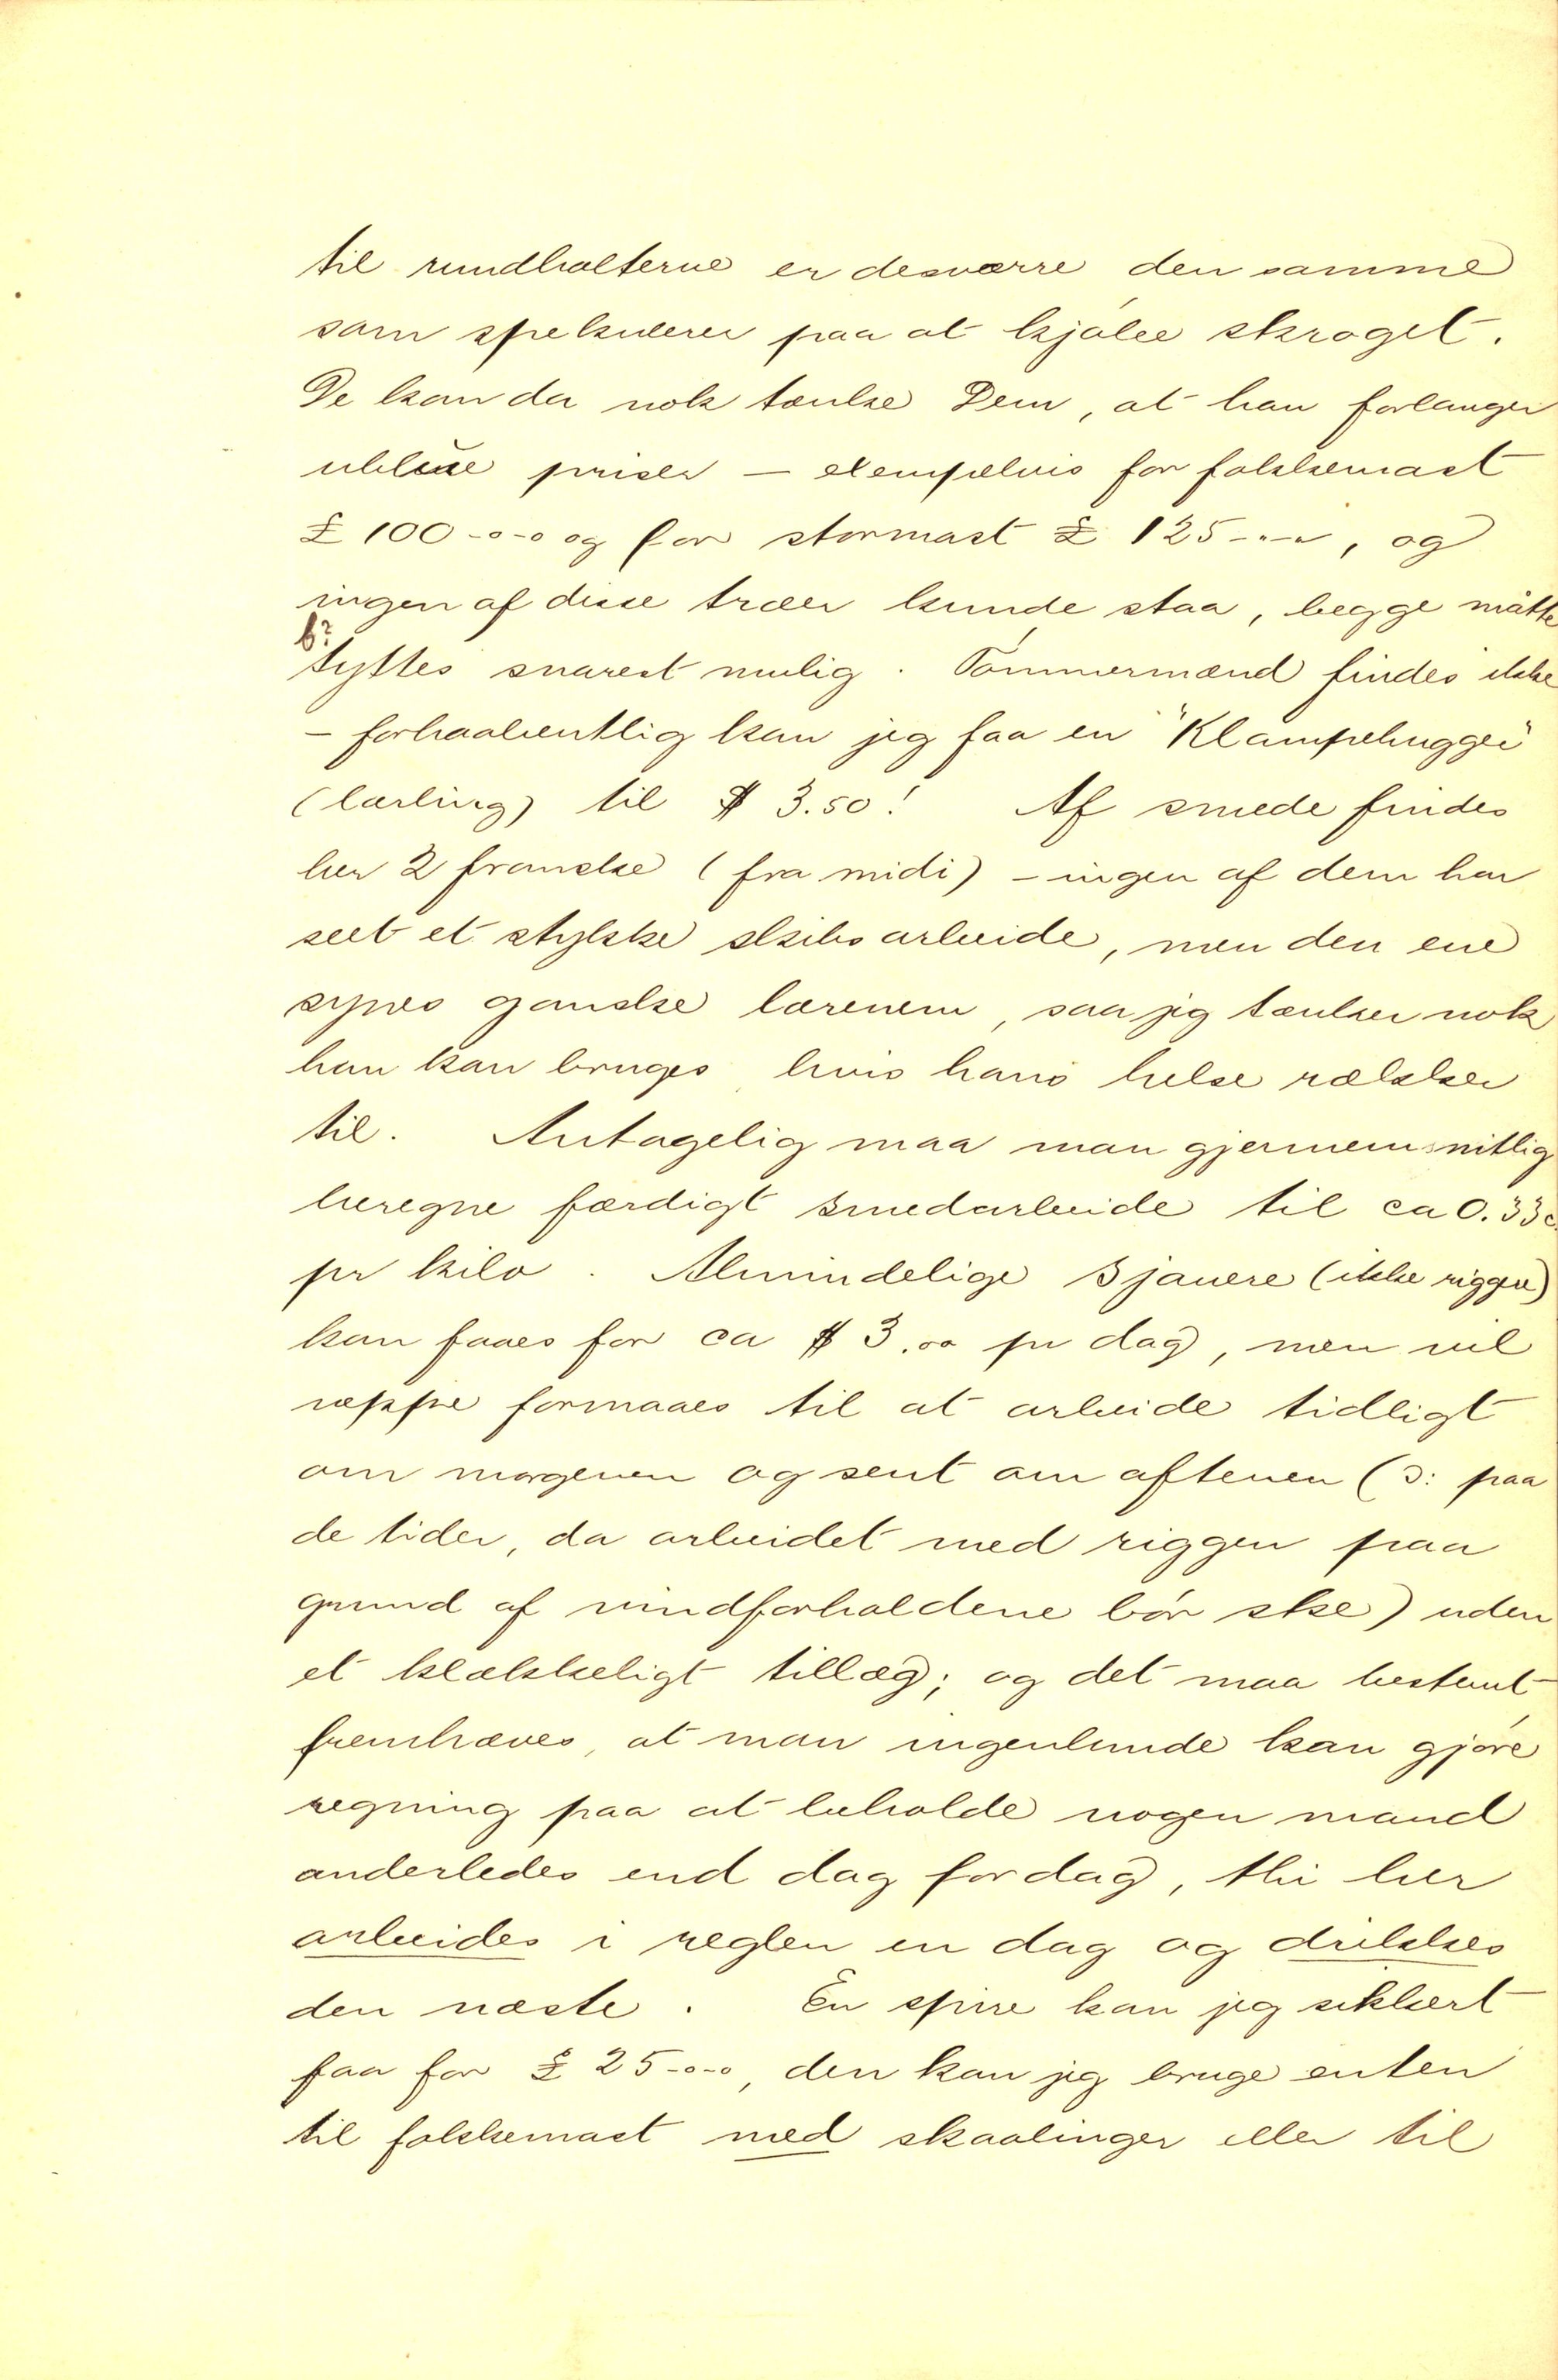 til rundholterne er desværre den samme
som spekulerer paa at kjøbe skroget.
De kan da nok tænke Dem, at han forlanger
ublue priser – exempelvis for fokkemast
£ 100-0-0 og for stormast £ 125-"-", og
ingen af disse træer kunde staa, begge måtte
byttes snarest mulig. Tømmermænd findes ikke
– forhaabentlig kan jeg faa en "Klampehugger"
(lærling) til $ 3.50! Af smede findes
her 2 franske (fra midi) – ingen af dem har
seet et stykke skibsarbeide, men den ene
synes ganske lærenem, saa jeg tænker nok
han kan bruges hvis hans helse rækker
til. Antagelig maa man gjennemsnitlig
beregne færdigt smedarbeide til ca 0.33c.
pr kilo. Almindelige sjauere (ikke riggere)
kan faaes for ca $ 3.00 pr dag, men vil
neppe formaaes til at arbeide tidligt
om morgenen og sent om aftenen (ɔ: paa
de tider, da arbeidet med riggen paa
grund af vindforholdene bør ske) uden
et klækkeligt tillæg; og det maa bestemt
fremhæves, at man ingenlunde kan gjøre
regning paa at beholde nogen mand
anderledes end dag for dag, thi her
arbeides i reglen en dag og drikkes
den næste. En spire kan jeg sikkert
faa for £ 25-0-0, den kan jeg bruge enten
til fokkemast med skaalinger eller til